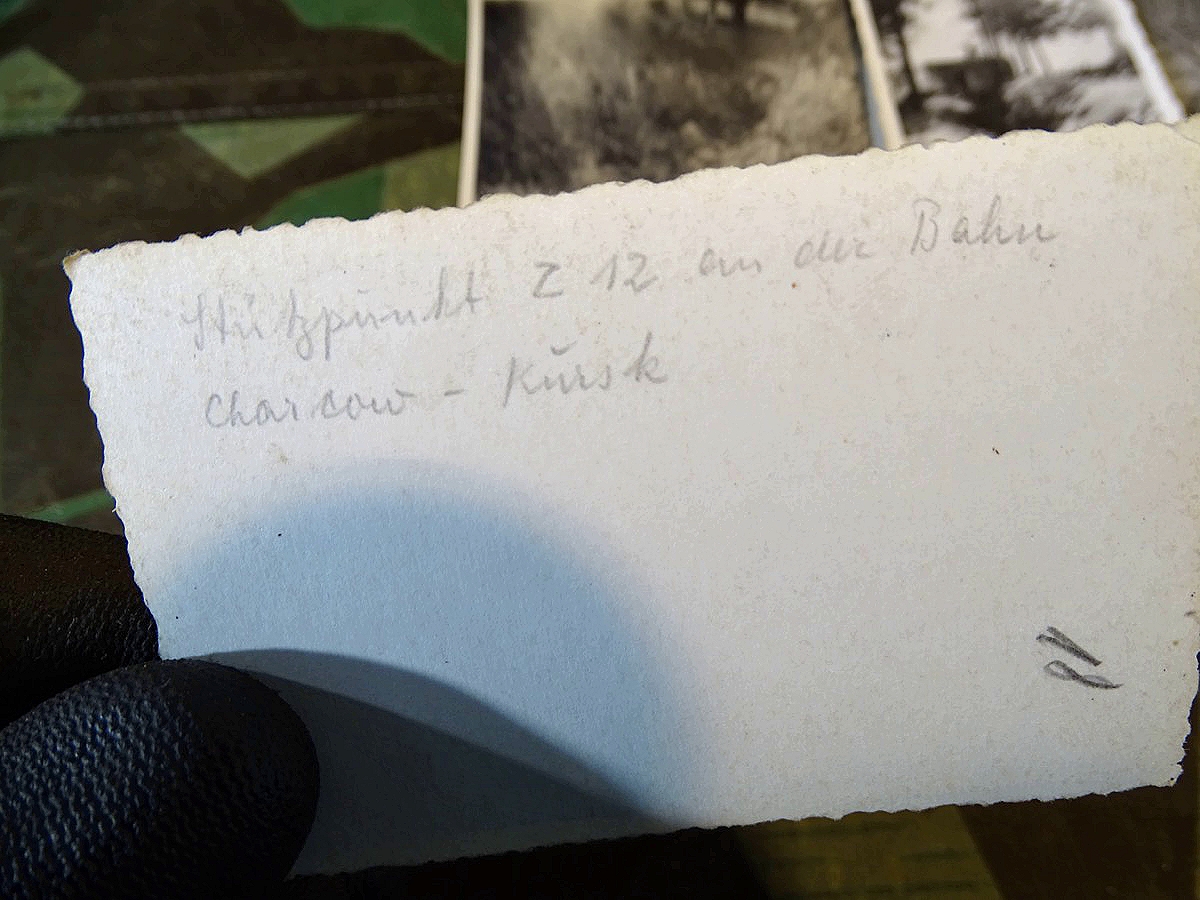 Stützpunkt Z 12 an der Bahn
Charcow - Kursk
12